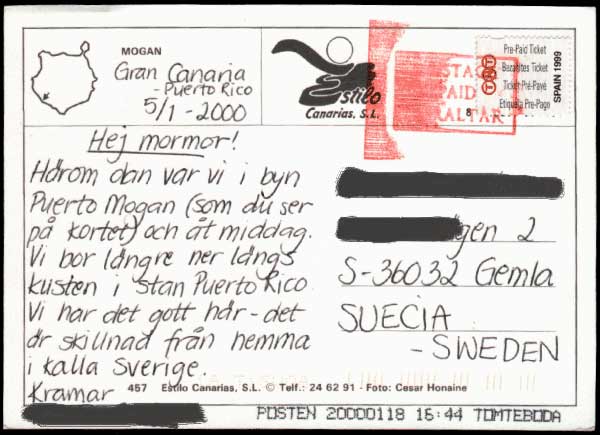 MOGAN
Gran Canaria
- Puerto Rico
5/1 - 2000
Estilo
Canarias, S.L.
TNT
STAG
PAID
ALTAR
8
Pre-Paid Ticket
Bezahltes Ticket
Ticket Pré-Payé
Etiqueta Pre-Pago
SPAIN 1999
Hej mormor!
Härom dan var vi i byn
Puerto Mogan (som du ser
på kortet) och åt middag.
Vi bor längre ner längs
kusten i stan Puerto Rico
Vi har det gott här - det
är skillnad från hemma
i kalla Sverige.
Kramar
gen 2
S-36032 Gemla
SUECIA
- SWEDEN
457 Estilo Canarias, S.L. © Telf.: 24 62 91 - Foto: Cesar Honaine
POSTEN 20000118 16:44 TOMTEBODA